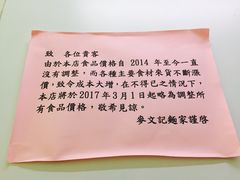 致 各位貴客
由於本店食品價格自 2014 年至今一直
沒有調整，而各種主要食材來貨不斷漲
價，致令成本大增，在不得已之情況下，
本店將於 2017 年 3 月 1 日起略為調整所
有食品價格，敬希見諒。
麥文記麵家謹啓